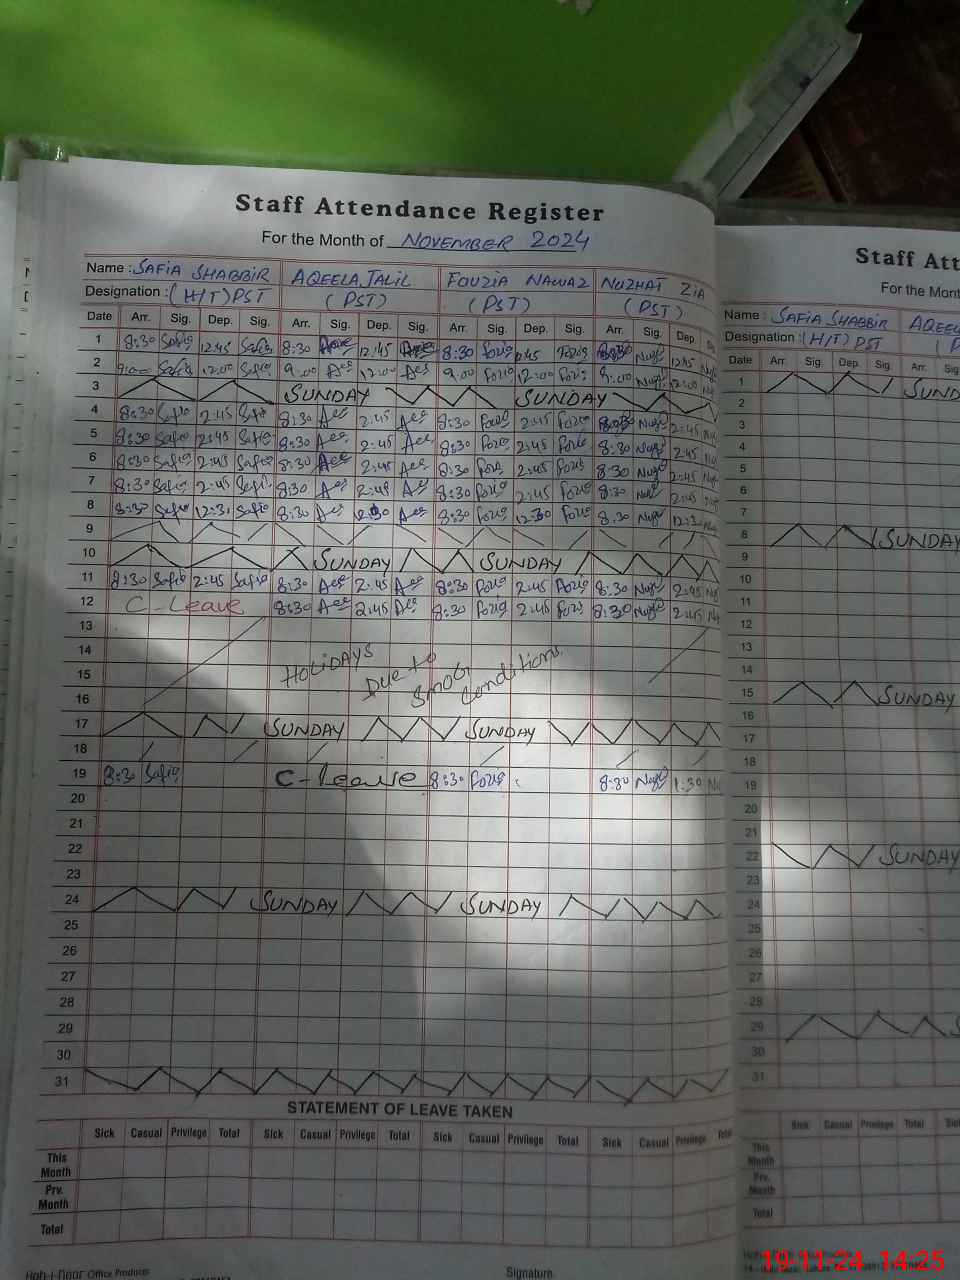 Staff Attendance Register
For the Month of NOVEMBER 2024
Name : SAFIA SHABBIR AQEELA JALIL FOUZIA NAWAZ NUZHAT ZIA
Designation : (H/T) PST (PST) (PST) (PST)
Date Arr. Sig. Dep. Sig. Arr. Sig. Dep. Sig. Arr. Sig. Dep. Sig. Arr. Sig. Dep.
1 8:30 Safia 12:45 Safia 8:30 12:45 8:30 Fozia 12:45 Fozia 12:45
2 9:00 Safia 12:00 Safia 9.00 12:00 9.00 Fozia 12:00 Fozia 9:00 12:00
3 SUNDAY SUNDAY
4 8:30 Safia 2:45 Safia 8:30 2:45 8:30 Fozia 2:45 Fozia 8:30 2:45
5 8:30 Safia 2:45 Safia 8:30 2:45 8:30 Fozia 2:45 Fozia 8:30 2:45
6 8:30 Safia 2:45 Safia 8:30 2:45 8:30 Fozia 2:45 Fozia 8:30 2:45
7 8:30 Safia 2:45 Safia 8:30 2:45 8:30 Fozia 2:45 Fozia 8:30 2:45
8 8:30 Safia 12:30 Safia 8:30 12:30 8:30 Fozia 12:30 Fozia 8.30 12:30
9
10 SUNDAY SUNDAY
11 8:30 Safia 2:45 Safia 8:30 2:45 8:30 Fozia 2:45 Fozia 8:30 2:45
12 C-Leave 8:30 2:45 8:30 Fozia 2:45 Fozia 8:30 2:45
13
14
15 HOLIDAYS Due to Smog Conditions.
16
17 SUNDAY SUNDAY
18
19 8:30 Safia C-Leave 8:30 Fozia 8:30 1:30
20
21
22
23
24 SUNDAY SUNDAY
25
26
27
28
29
30
31
STATEMENT OF LEAVE TAKEN
Sick Casual Privilege Total Sick Casual Privilege Total Sick Casual Privilege Total Sick Casual Privilege Total
This Month
Prv. Month
Total
Office Products
Signature
Staff Att
For the Mont
Name : SAFIA SHABBIR AQEEL
Designation : (H/T) PST
Date Arr. Sig. Dep. Sig. Arr. Sig.
1 SUND
2
3
4
5
6
7
8 SUNDAY
9
10
11
12
13
14
15 SUNDAY
16
17
18
19
20
21
22 SUNDAY
23
24
25
26
27
28
29
30
31
Sick Casual Privilege Total
This Month
Prv. Month
Total
19-11-24 14:25